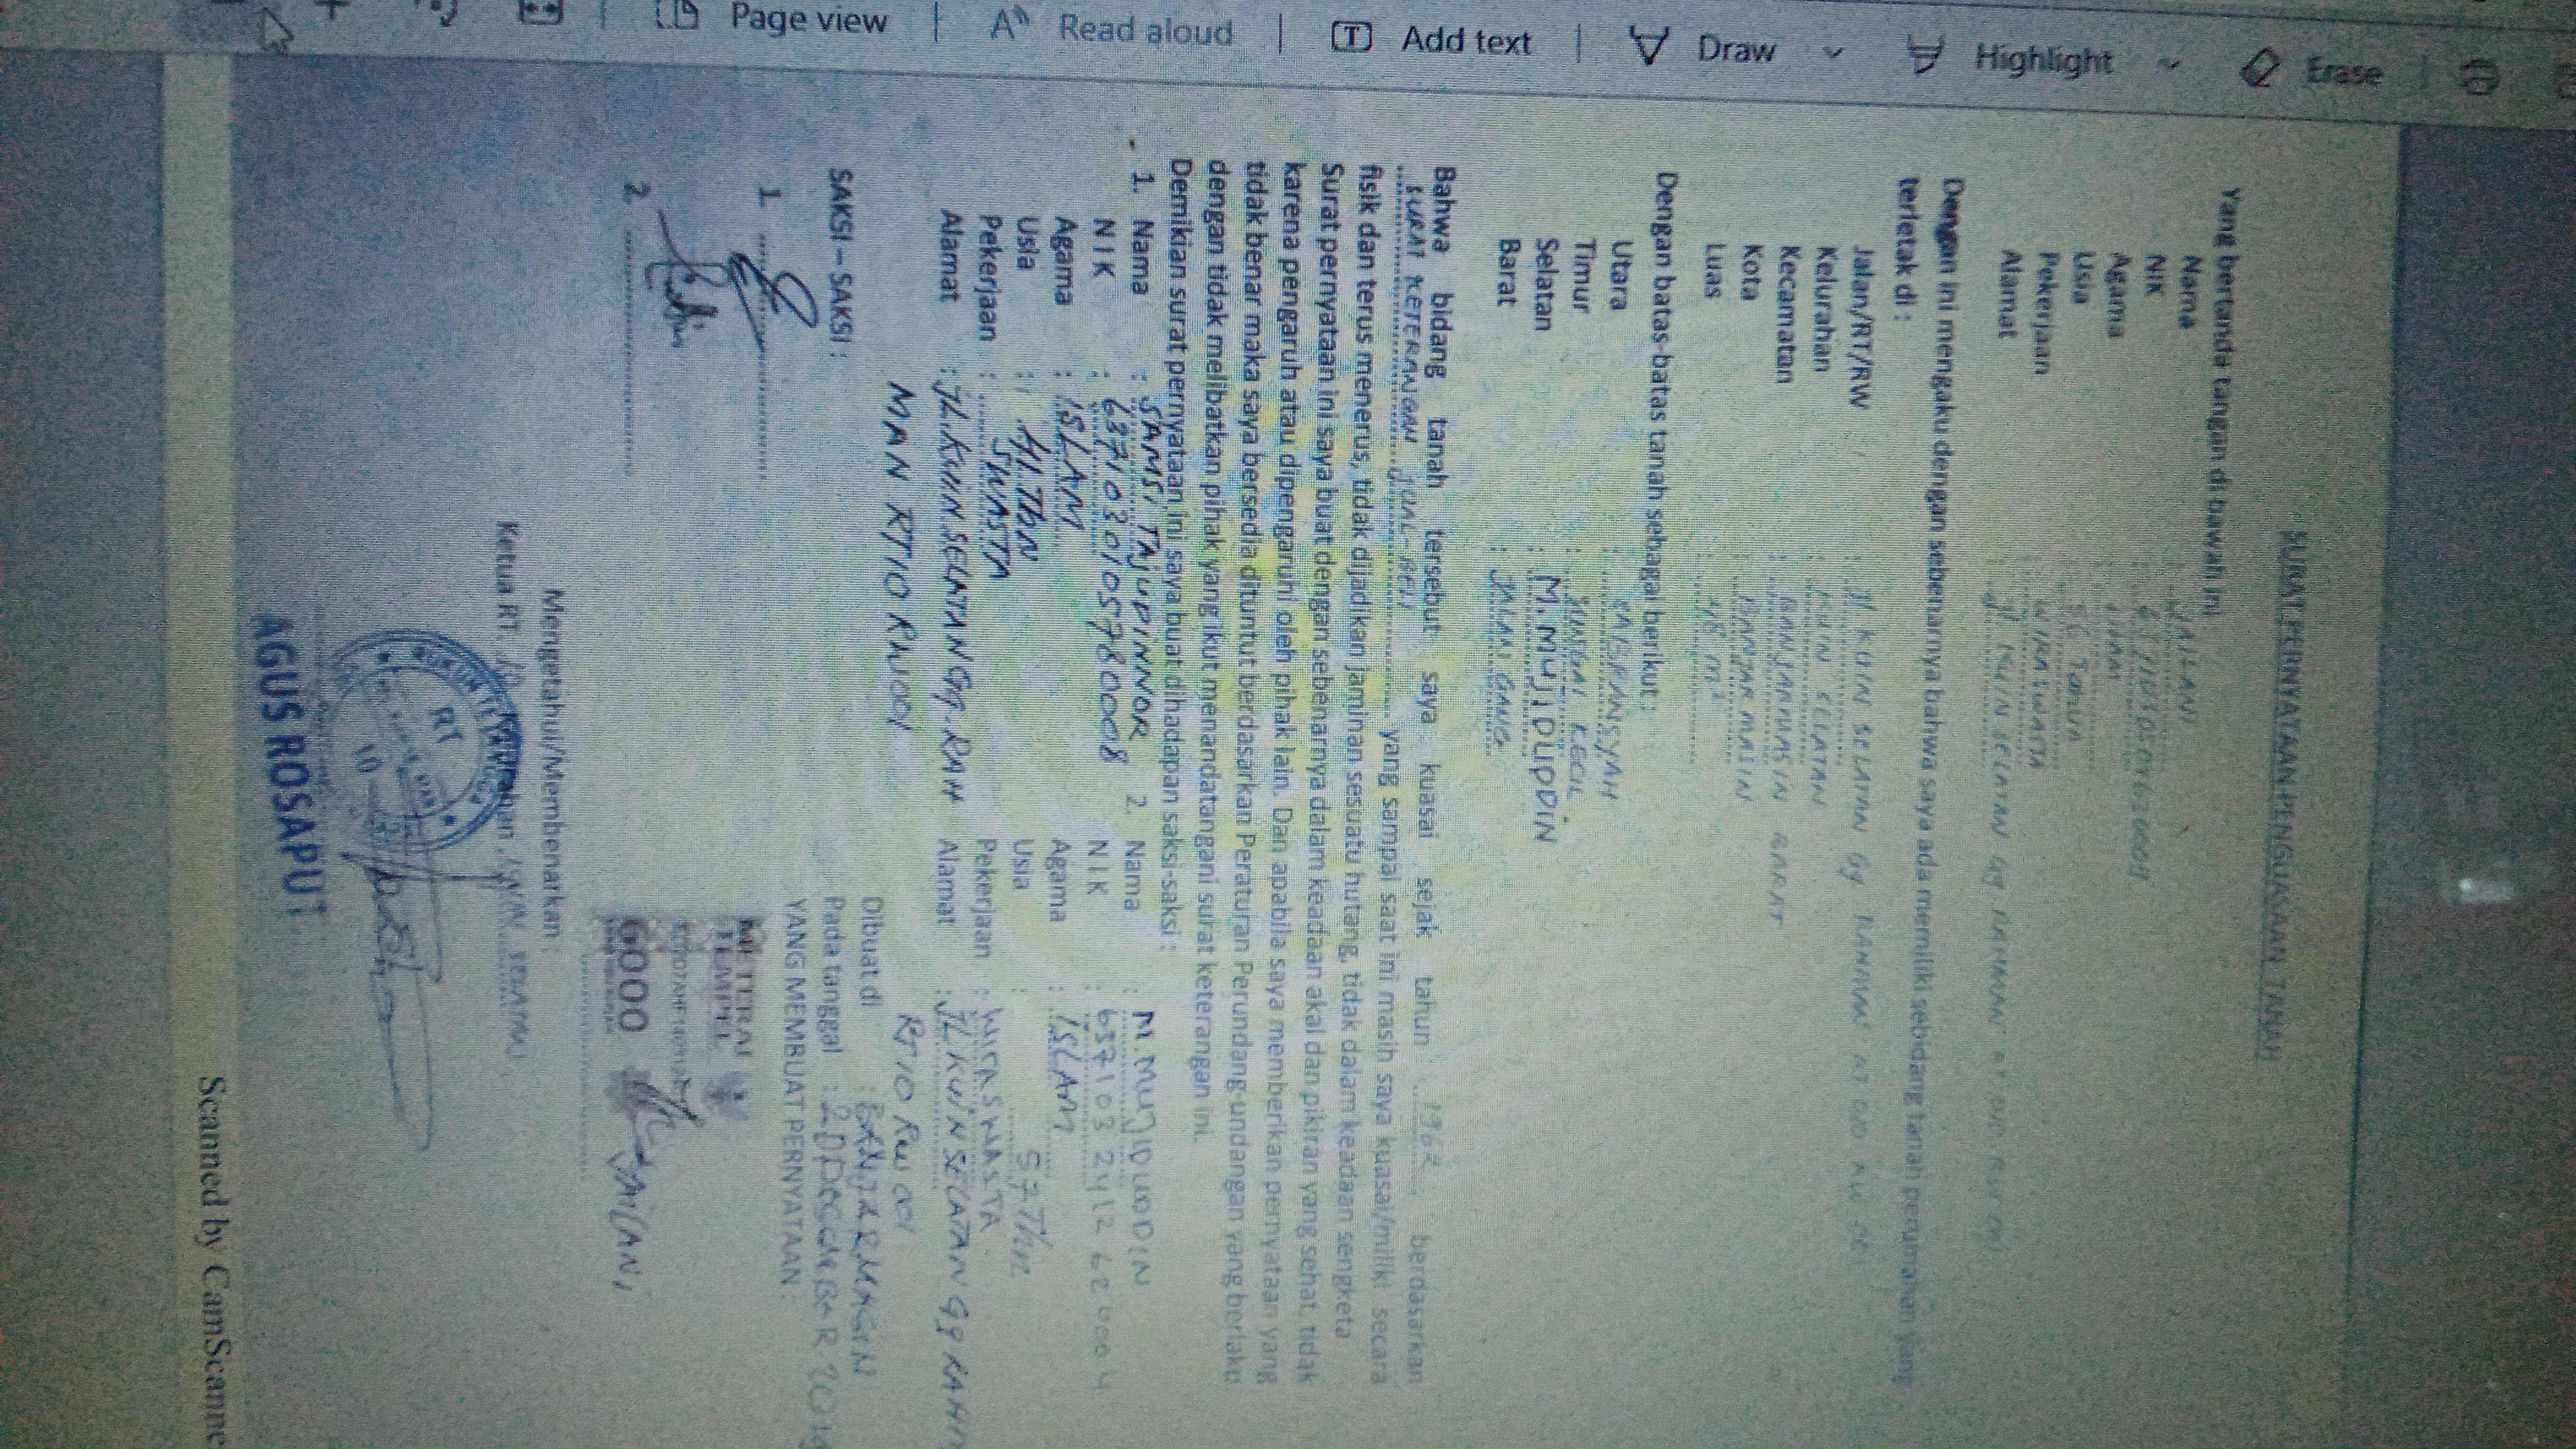 Page view | Read aloud | Add text | Draw | Highlight | Erase
SURAT PERNYATAAN PENGUASAAN TANAH
Yang bertanda tangan di bawah ini
Nama : JAILANI
NIK
Agama : ISLAM
Usia : Tahun
Pekerjaan : WIRASWASTA
Alamat : Jl KUIN SELATAN Gg
Dengan ini mengaku dengan sebenarnya bahwa saya ada memiliki sebidang tanah perumahan yang
terletak di :
Jalan/RT/RW : Jl KUIN SELATAN Gg
Kelurahan : KUIN SELATAN
Kecamatan : BANJARMASIN BARAT
Kota : BANJARMASIN
Luas : m²
Dengan batas-batas tanah sebagai berikut :
Utara : SABRANSYAH
Timur : SUNGAI KECIL
Selatan : M. MUJIDUPDIN
Barat : JALAN GANG
Bahwa bidang tanah tersebut saya kuasai sejak tahun 1962 berdasarkan
SURAT KETERANGAN JUAL-BELI yang sampai saat ini masih saya kuasai/miliki secara
fisik dan terus menerus, tidak dijadikan jaminan sesuatu hutang, tidak dalam keadaan sengketa
Surat pernyataan ini saya buat dengan sebenarnya dalam keadaan akal dan pikiran yang sehat, tidak
karena pengaruh atau dipengaruhi oleh pihak lain. Dan apabila saya memberikan pernyataan yang
tidak benar maka saya bersedia dituntut berdasarkan Peraturan Perundang-undangan yang berlaku
dengan tidak melibatkan pihak yang ikut menandatangani surat keterangan ini.
Demikian surat pernyataan ini saya buat dihadapan saksi-saksi :
1. Nama : SAMSI TAJUPINNOR 2. Nama : M. MUJIDUDDIN
NIK : 6371030105780008 NIK : 6371032412620004
Agama : ISLAM Agama : ISLAM
Usia : 41. Thn Usia : 57 Thn
Pekerjaan : SWASTA Pekerjaan : WIRASWASTA
Alamat : JL.KUIN SELATAN Gg. RAH Alamat : JL KUIN SELATAN Gg RAHM
MAN RT10 RW001 RT10 RW 001
Dibuat di : BANJARMASIN
SAKSI – SAKSI : Pada tanggal : 20 DECEMBER
YANG MEMBUAT PERNYATAAN :
1
METERAI
TEMPEL
6000
2
JAILANI
Mengetahui/Membenarkan :
Ketua RT. 10 Kelurahan KUIN SELATAN
RT
10
AGUS ROSAPUT
Scanned by CamScanne